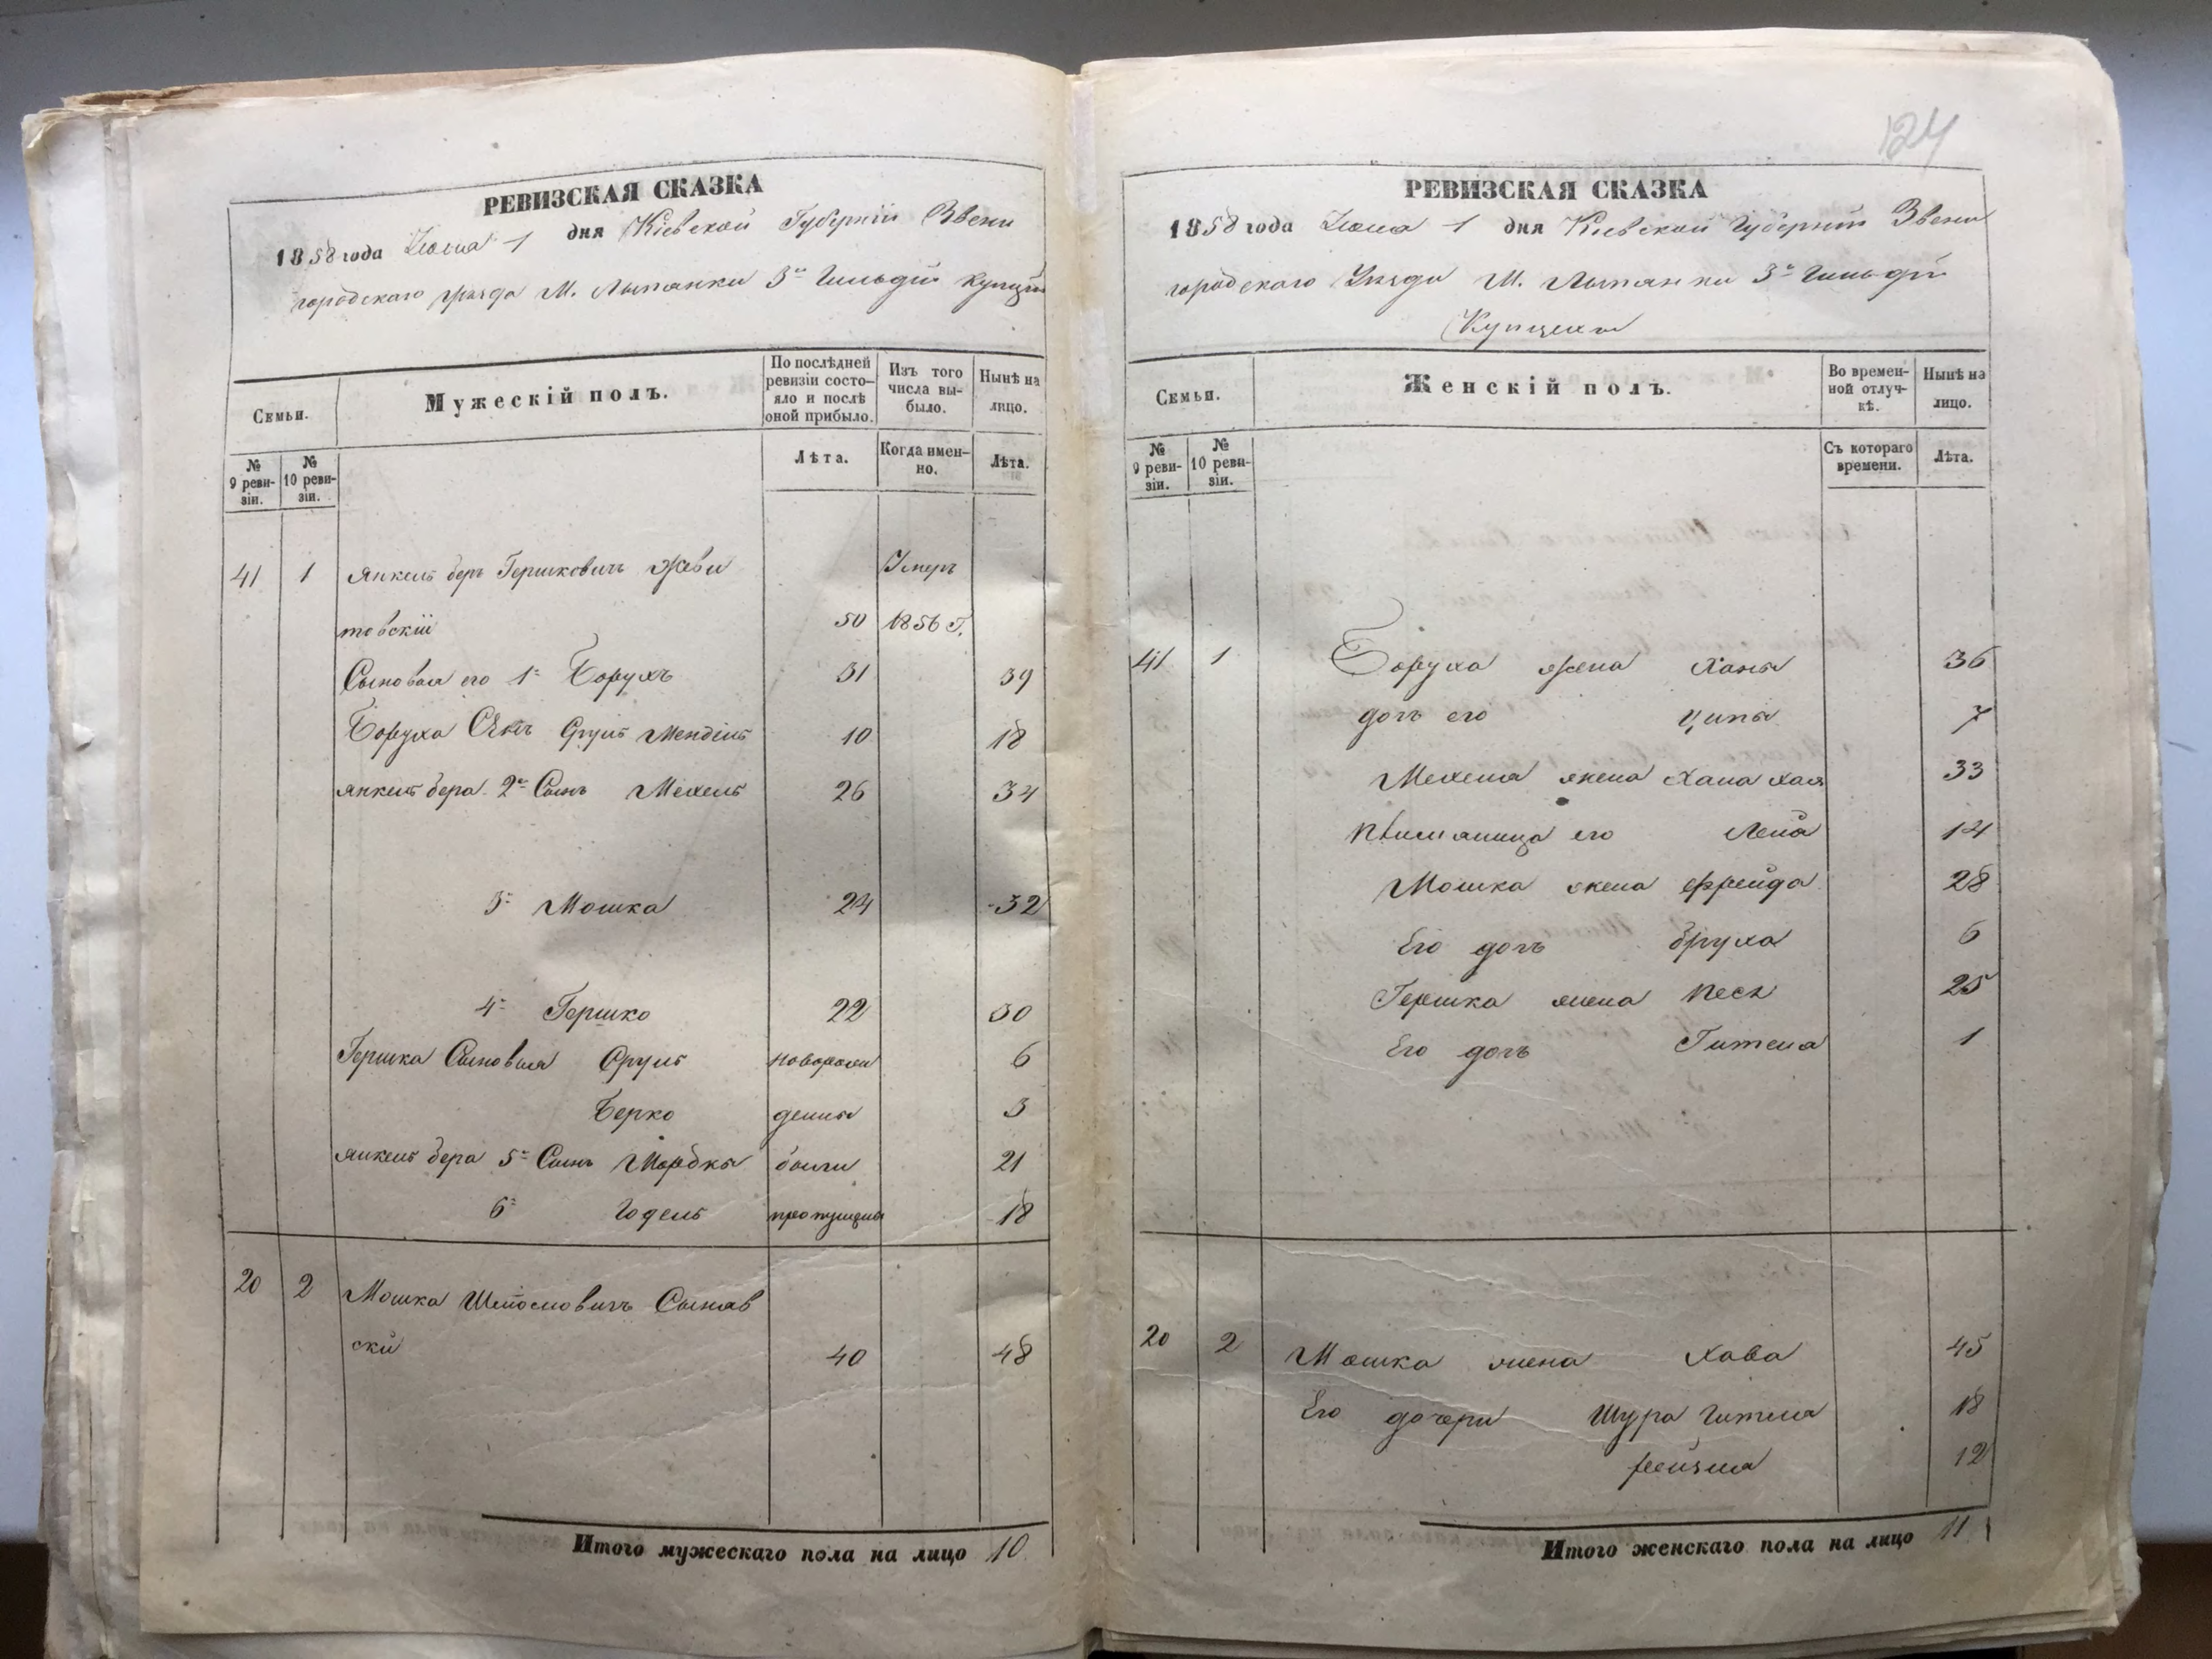 РЕВИЗСКАЯ СКАЗКА
1858 года Июня 1 дня Кіевской Губерніи Звени
городскаго уѣзда М. Лысянки 3й Гильдіи купцы
Семьи.
Мужескій полъ.
По послѣдней ревизіи состо-
яло и послѣ
оной прибыло.
Изъ того
числа вы-
было.
Нынѣ на
лицо.
№
9 реви-
зіи.
№
10 реви-
зіи.
Лѣта.
Когда имен-
но.
Лѣта.
41 1 Янкель беръ Гершковичъ Жви Умеръ
товскій 50 1856 Г.
Сыновья его 1й Борухъ 31 39
Боруха Сынъ Сруль Мендель 10 18
Янкель бера 2й Сынъ Мехель 26 34
3й Мошка 24 32
4й Гершко 22 30
Гершка Сыновья Сруль новорож 6
Берко денны 3
Янкель бера 5й Сынъ Мордко были 21
6й Годель пропущены 18
20 2 Мошка Шліомовичъ Сыняв
скій 40 48
Итого мужескаго пола на лицо 10
124
РЕВИЗСКАЯ СКАЗКА
1858 года Июня 1 дня Кіевской Губерніи Звени
городскаго Уѣзда М. Лысянки 3й Гильдіи
Купцехъ
Семьи.
Женскій полъ.
Во времен-
ной отлуч-
кѣ.
Нынѣ на
лицо.
№
9 реви-
зіи.
№
10 реви-
зіи.
Съ котораго
времени.
Лѣта.
41 1 Боруха жена Ханя 36
дочь его Ципя 7
Мехеля жена Хана Хая 33
племяница его Лея 14
Мошка жена Фрейда 28
Его дочь Бруха 6
Гершка жена Песя 25
Его дочь Гитля 1
20 2 Мошка жена Хава 45
Его дочери Шура Гитля 18
Рейзля 12
Итого женскаго пола на лицо 11